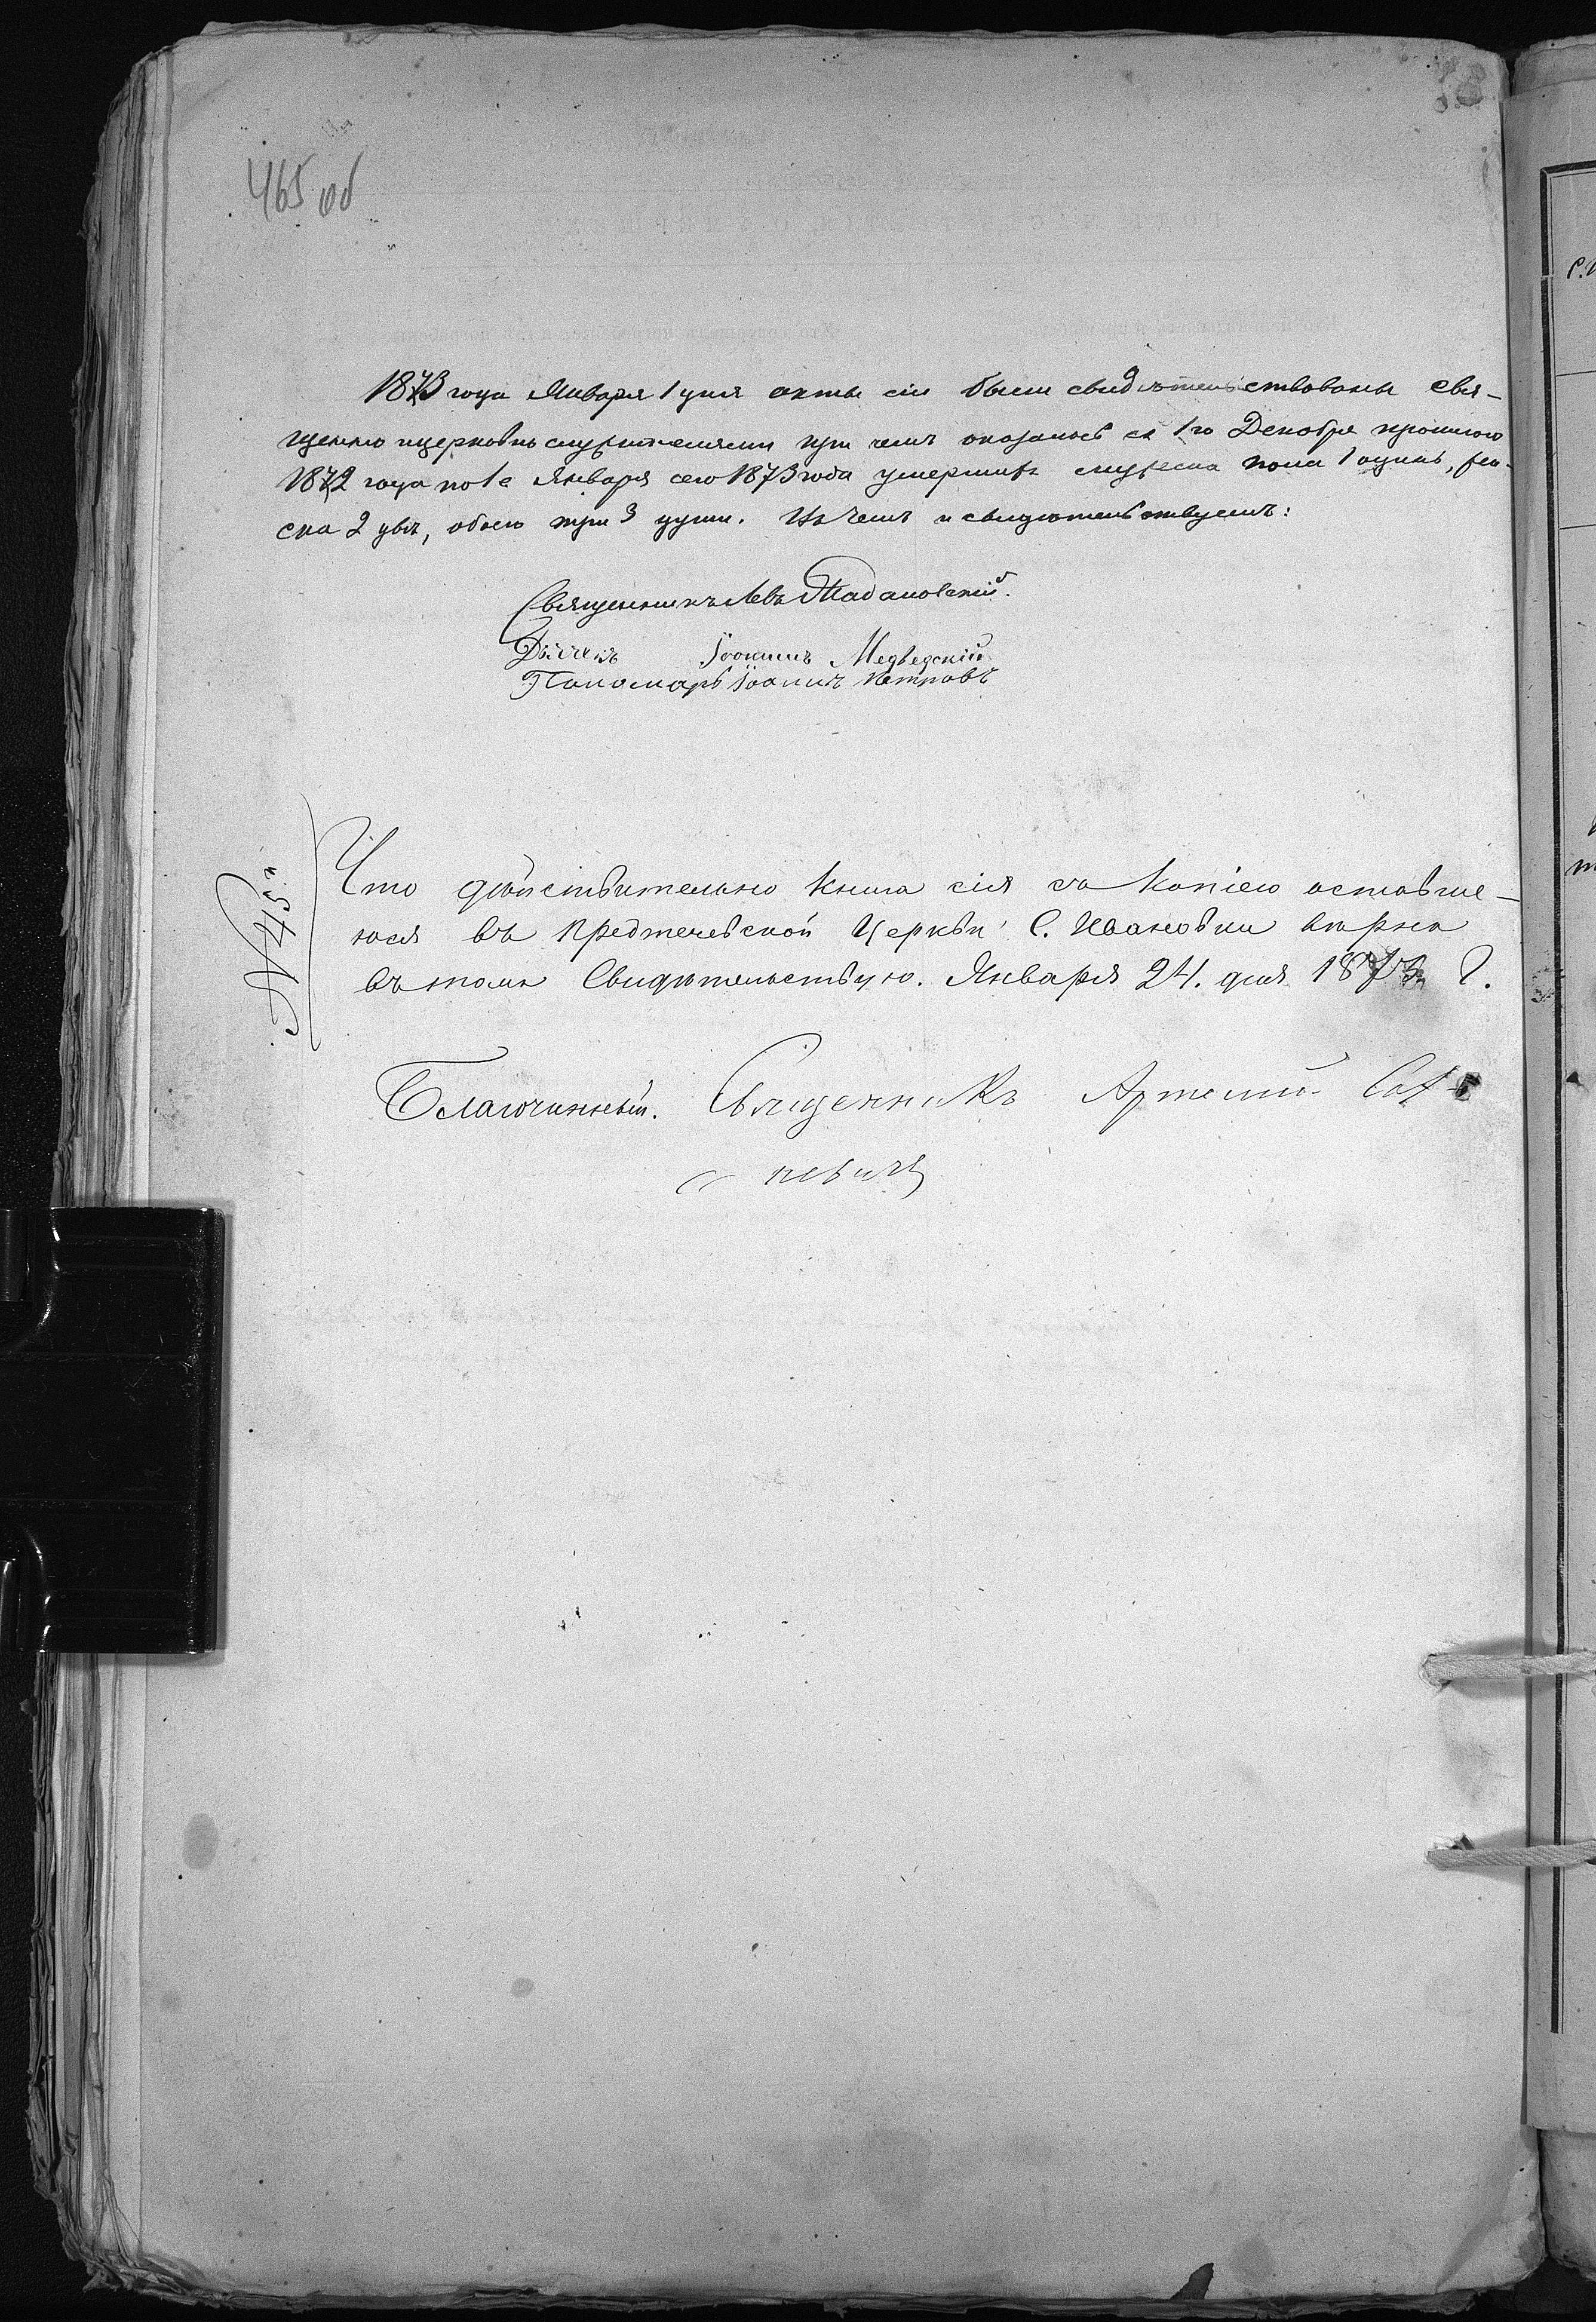 465 об
1873 года Января 1 дня акты сіи были свидѣтельствованы свя-
щенно и церковно служителями при чемъ оказалось съ 1го Декабря прошлаго
1872 года по 1е Января сего 1873 года умершихъ мужеска пола 1 одинъ, жен-
ска 2 двѣ, обоего три 3 души. Въ чемъ и свидѣтельствуемъ:
Священникъ Левъ
Дьячекъ Іоакимъ Медвѣдскій
Пономарь Іоаннъ Петровъ
№ 45"
Что дѣйствительно книга сія съ копіею оставше-
юся въ Предтечевской Церкви С. Ивановки вѣрна
въ томъ Свидѣтельствую. Января 24. дня 1873 г.
Благочинный. Священникъ Артемій